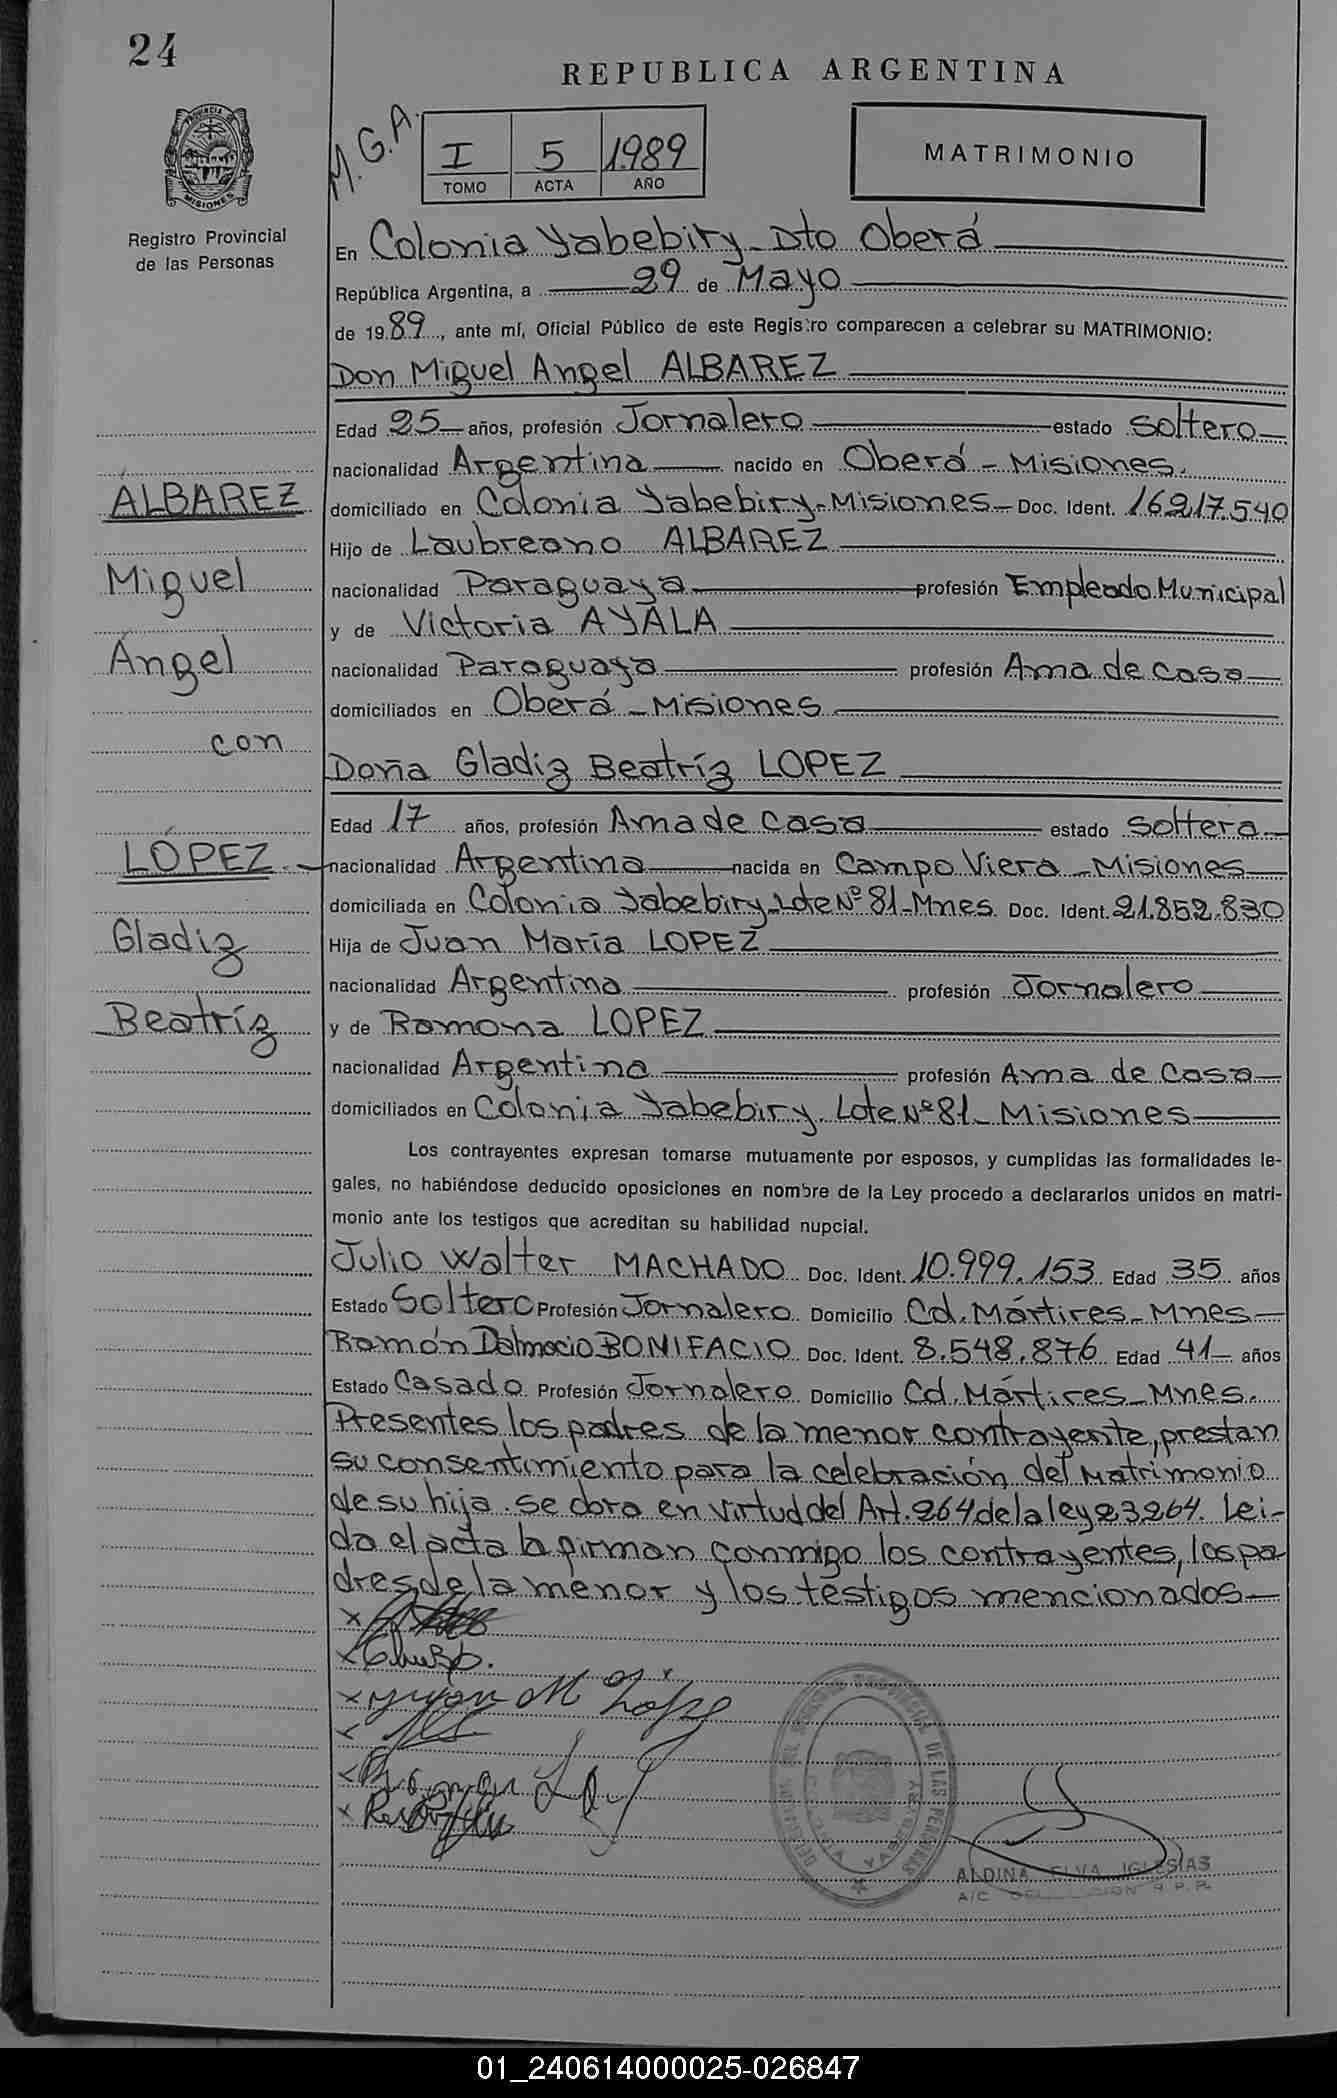 24
REPUBLICA ARGENTINA
PROVINCIA DE
MISIONES
Registro Provincial
de las Personas
M.G.A.
I 5 1989
TOMO ACTA AÑO
MATRIMONIO
En Colonia Yabebiry - Dto Oberá
República Argentina, a 29 de Mayo
de 1989, ante mí, Oficial Público de este Registro comparecen a celebrar su MATRIMONIO:
Don Miguel Angel ALBAREZ
Edad 25 años, profesión Jornalero estado Soltero
nacionalidad Argentina nacido en Oberá - Misiones.
ÁLBAREZ
domiciliado en Colonia Yabebiry - Misiones Doc. Ident. 16.217.540
Hijo de Laubreano ALBAREZ
Miguel
nacionalidad Paraguaya profesión Empleado Municipal
y de Victoria AYALA
Ángel
nacionalidad Paraguaya profesión Ama de Casa
domiciliados en Oberá - Misiones
con
Doña Gladiz Beatríz LOPEZ
Edad 17 años, profesión Ama de Casa estado Soltera
LÓPEZ
nacionalidad Argentina nacida en Campo Viera - Misiones
domiciliada en Colonia Yabebiry - Lote Nº 81 - Mnes. Doc. Ident. 21.852.830
Gladiz
Hija de Juan María LOPEZ
nacionalidad Argentina profesión Jornalero
Beatríz
y de Ramona LOPEZ
nacionalidad Argentina profesión Ama de Casa
domiciliados en Colonia Yabebiry. Lote Nº 81 - Misiones
Los contrayentes expresan tomarse mutuamente por esposos, y cumplidas las formalidades le-
gales, no habiéndose deducido oposiciones en nombre de la Ley procedo a declararlos unidos en matri-
monio ante los testigos que acreditan su habilidad nupcial.
Julio Walter MACHADO Doc. Ident. 10.999.153 Edad 35 años
Estado Soltero Profesión Jornalero Domicilio Cd. Mártires - Mnes
Ramón Dalmacio BONIFACIO Doc. Ident. 8.548.876 Edad 41 años
Estado Casado Profesión Jornalero Domicilio Cd. Mártires - Mnes.
Presentes los padres de la menor contrayente, prestan
su consentimiento para la celebración del Matrimonio
de su hija. Se obra en virtud del Art. 264 de la ley 23264. Lei-
da el acta la firman conmigo los contrayentes, los pa
dres de la menor y los testigos mencionados
Juan M López
ALDINA ELVA IGLESIAS
A/C DELEGACION R.P.P.
01_240614000025-026847